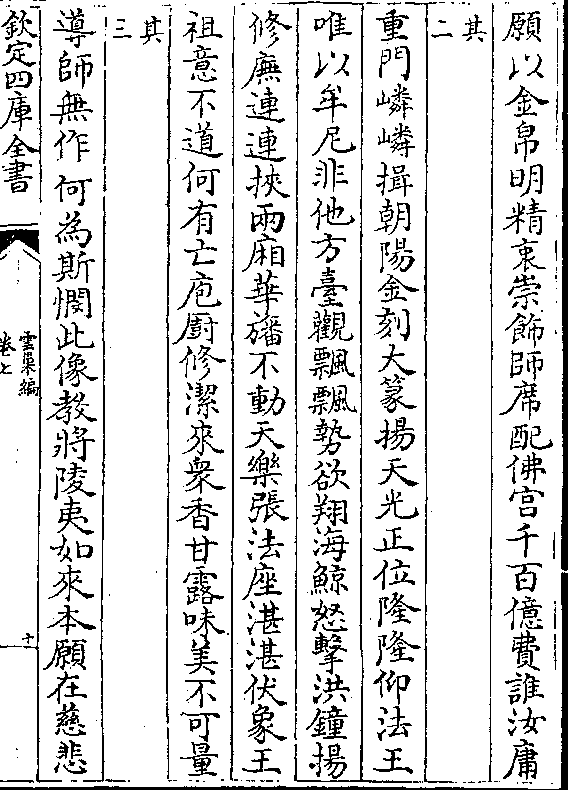 願以金帛明精衷崇飾師席配佛宫千百億費誰汝庸
其二
重門嶙嶙揖朝陽金刻大篆揚天光正位隆隆仰法王
唯以牟尼非他方臺觀飄飄勢欲翔海鯨怒擊洪鐘揚
修廡連連挾兩廂華旛不動天樂張法座湛湛伏象王
祖意不道何有亡庖厨修潔來衆香甘露味美不可量
其三
導師無作何為斯憫此像教將陵夷如來本願在慈悲
欽定四庫全書
雲巢編
卷七
十